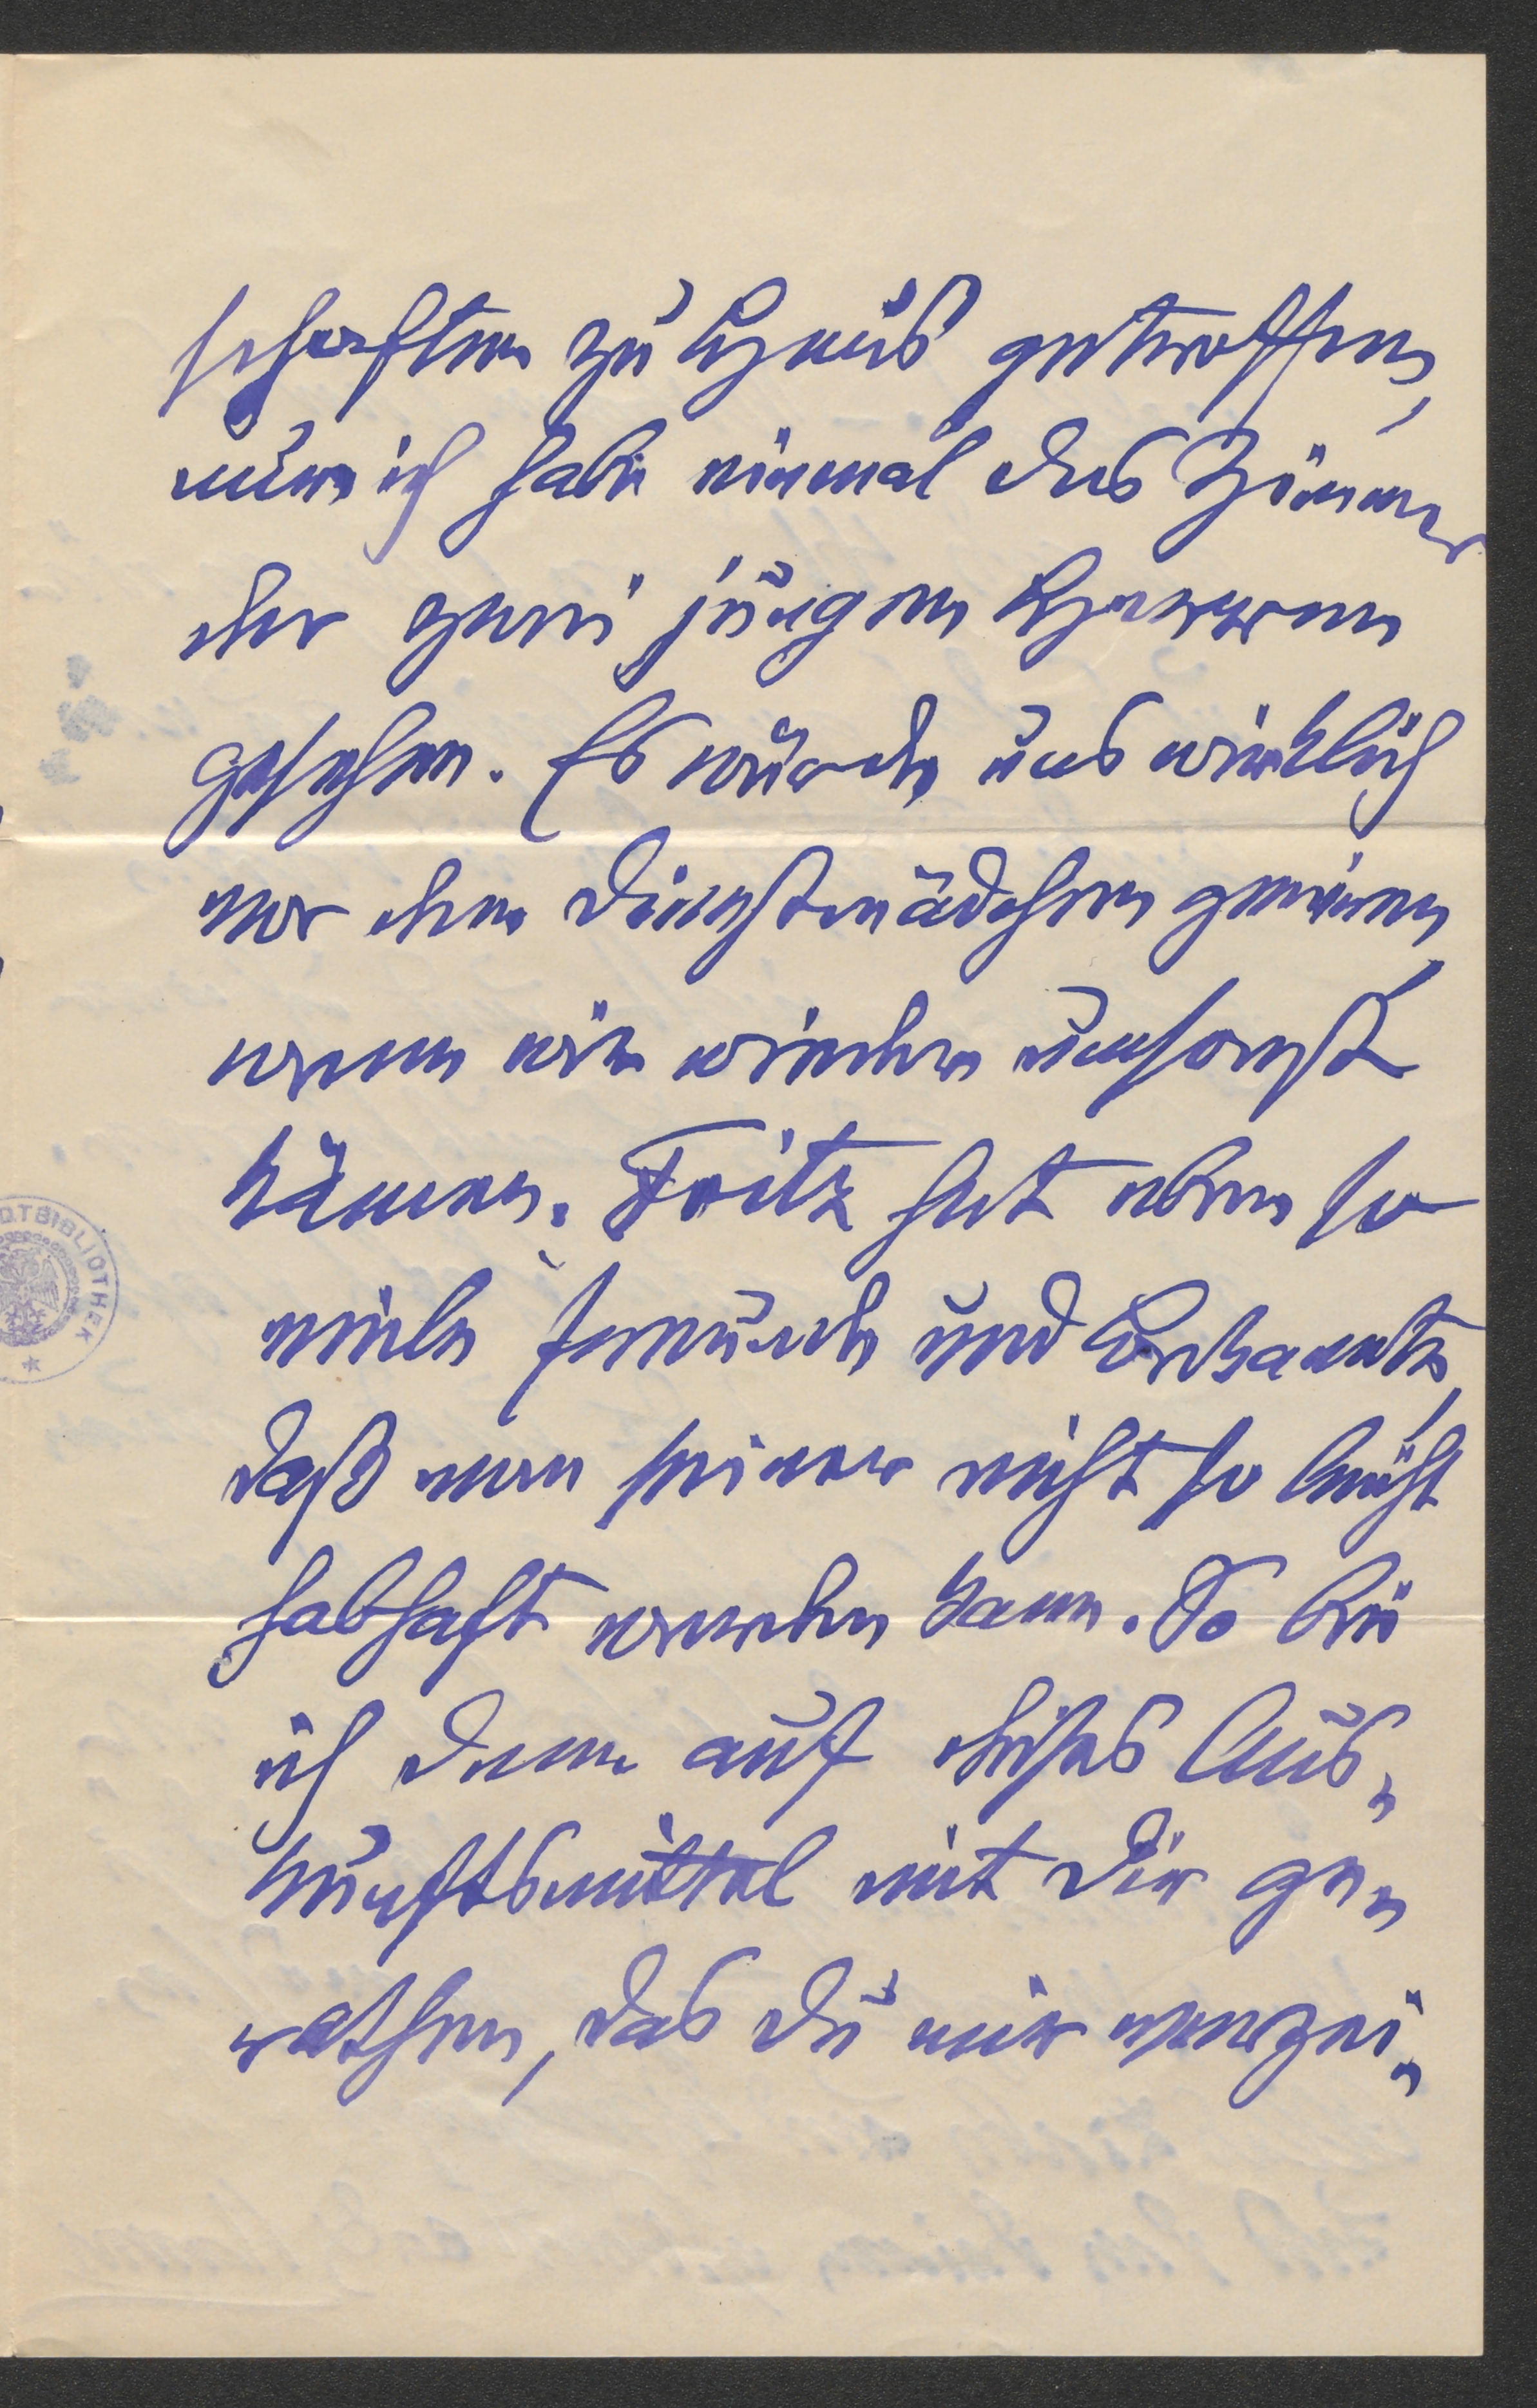 schaften zu Haus getroffen,
nur ich habe einmal das Zimmer
der zwei jungen Herren
gesehen. Es würde uns wirklich
vor den Dienstmädchen genieren,
wenn wir wieder umsonst
kämen. Fritz hat eben so
viele Freunde und Bekannte,
daß man seiner nicht so leicht
habhaft werden kann. So bin
ich denn auf dieses Aus-
kunftsmittel mit Dir ge-
rathen, das Du mir verzei-